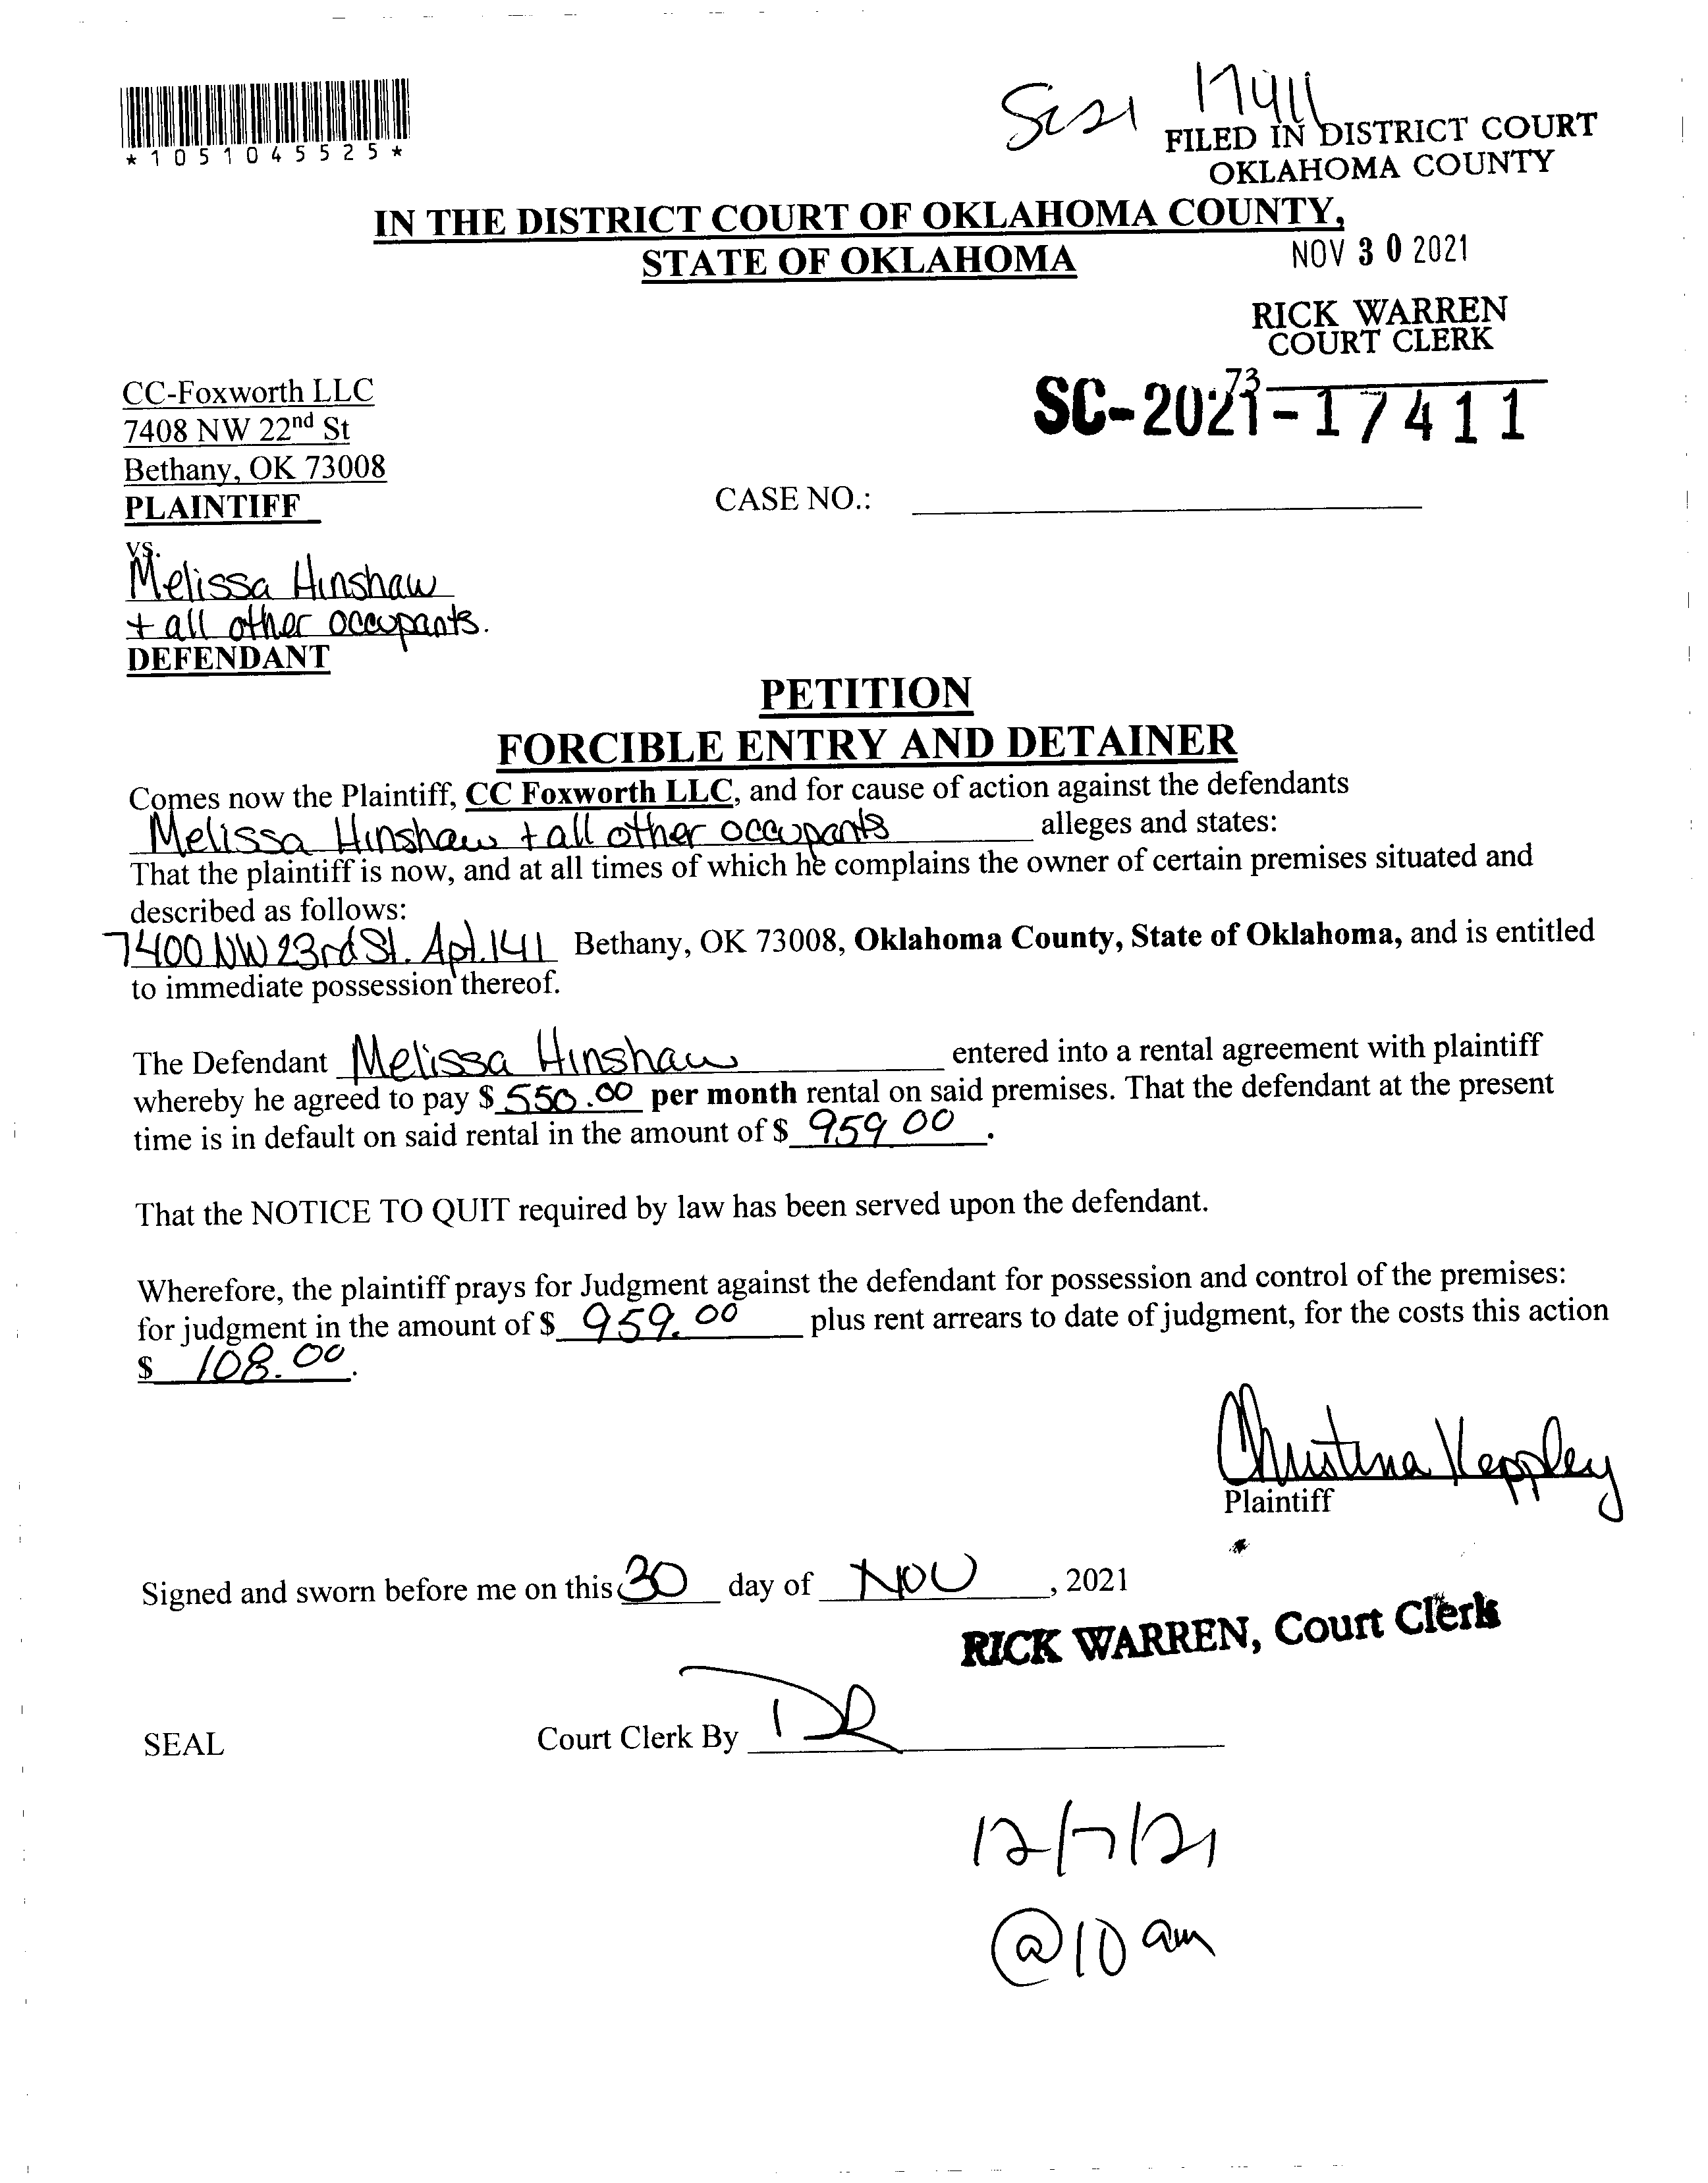 *1051045525*
SC21 17411
FILED IN DISTRICT COURT
OKLAHOMA COUNTY
IN THE DISTRICT COURT OF OKLAHOMA COUNTY,
STATE OF OKLAHOMA
NOV 30 2021
RICK WARREN
COURT CLERK
73
SC-2021-17411
CC-Foxworth LLC
7408 NW 22nd St
Bethany, OK 73008
PLAINTIFF
CASE NO.:
vs.
Melissa Hinshaw
+ all other occupants.
DEFENDANT
PETITION
FORCIBLE ENTRY AND DETAINER
Comes now the Plaintiff, CC Foxworth LLC, and for cause of action against the defendants
Melissa Hinshaw + all other occupants alleges and states:
That the plaintiff is now, and at all times of which he complains the owner of certain premises situated and
described as follows:
7400 NW 23rd St. Apt. 141 Bethany, OK 73008, Oklahoma County, State of Oklahoma, and is entitled
to immediate possession thereof.
The Defendant Melissa Hinshaw entered into a rental agreement with plaintiff
whereby he agreed to pay $ 550.00 per month rental on said premises. That the defendant at the present
time is in default on said rental in the amount of $ 959 00.
That the NOTICE TO QUIT required by law has been served upon the defendant.
Wherefore, the plaintiff prays for Judgment against the defendant for possession and control of the premises:
for judgment in the amount of $ 959.00 plus rent arrears to date of judgment, for the costs this action
$ 108.00.
Christina Keppley
Plaintiff
Signed and sworn before me on this 30 day of NOV, 2021
RICK WARREN, Court Clerk
SEAL
Court Clerk By DR
12/7/21
@10 am